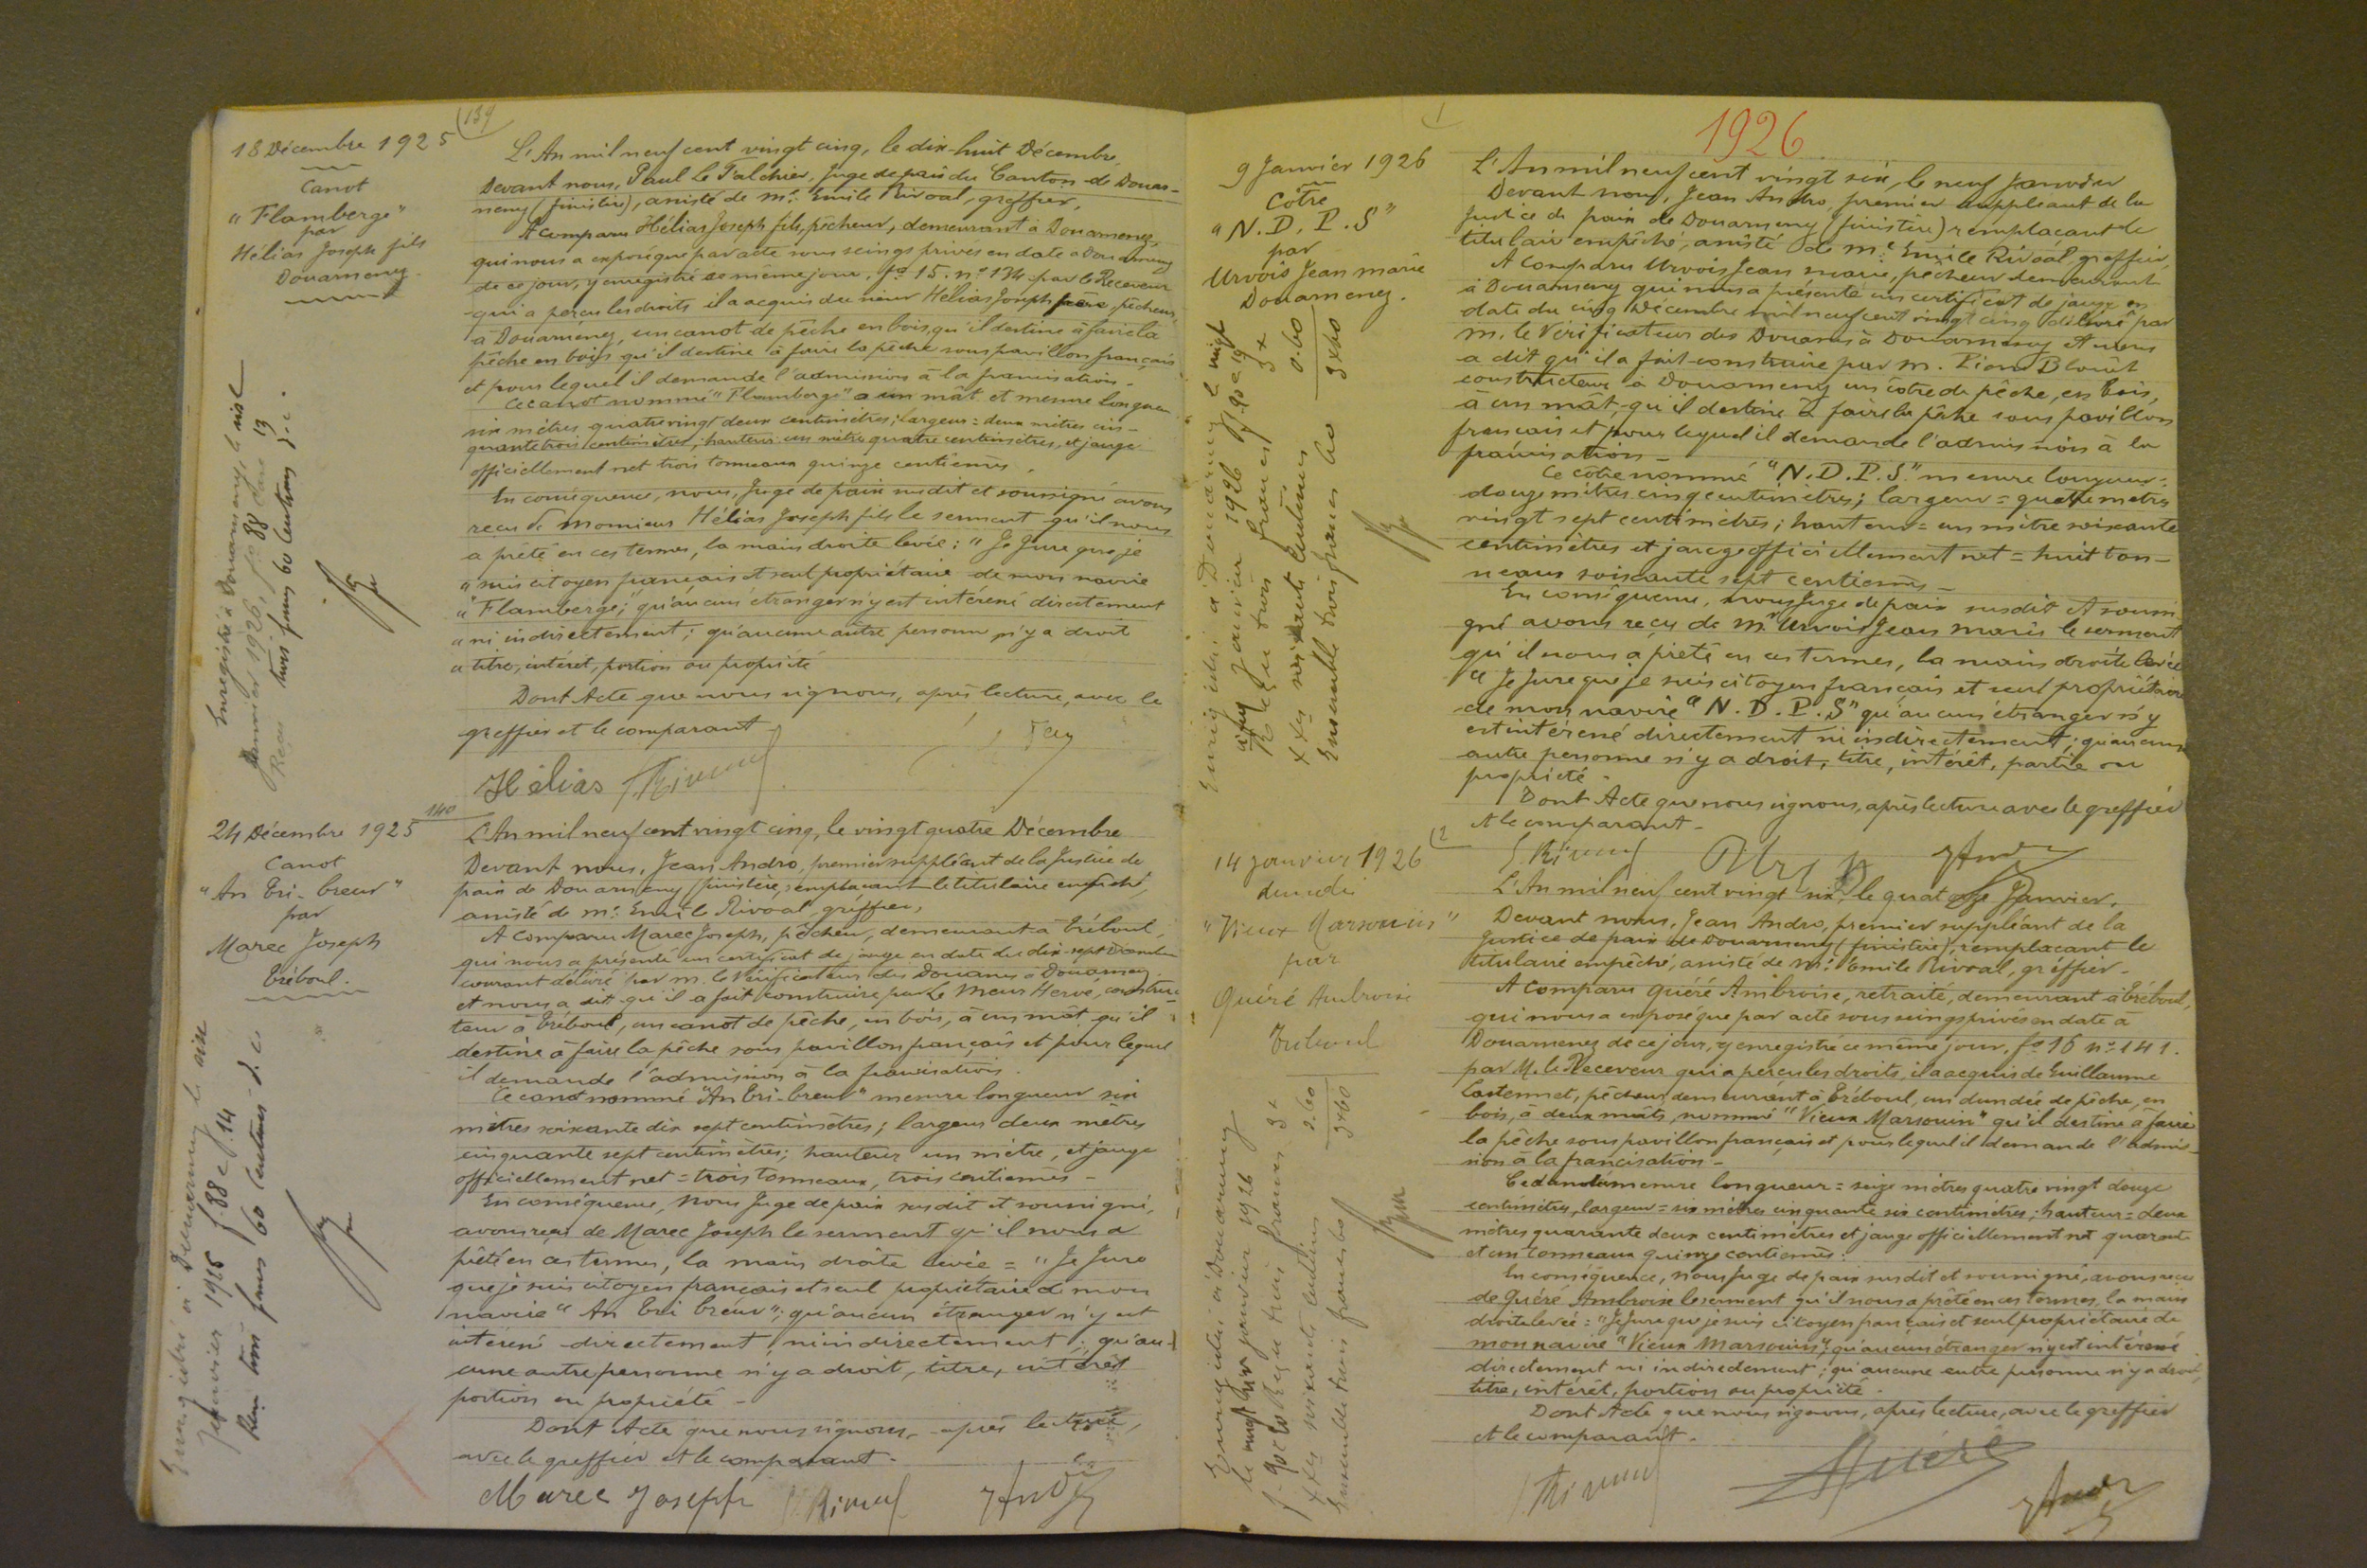 139
18 Décembre 1925
Canot
"Flamberge"
par
Hélias Joseph fils
Douarnenez
L'An mil neuf cent vingt cinq, le dix-huit Décembre,
Devant nous, Paul Le Talchier, Juge de paix du Canton de Douar-
nenez (finistère), assisté de Me Emile Rivoal, greffier,
A comparu Hélias Joseph fils, pêcheur, demeurant à Douarnenez,
qui nous a exposé que par acte sous seings privés en date à Douarnenez
de ce jour, y enregistré ce même jour, fo 15. no 134 par le Receveur
qui a perçu les droits il a acquis du sieur Hélias Joseph père, pêcheur
à Douarnenez, un canot de pêche en bois, qu'il destine à faire la
pêche en bois qu'il destine à faire la pêche sous pavillon français
et pour lequel il demande l'admission à la francisation.
Ce canot nommé "Flamberge" a un mât et mesure longueur
six mètres quatre vingt deux centimètres; largeur = deux mètres cin-
quante trois centimètres, hauteur un mètre quatre centimètres, et jauge
officiellement net trois tonneaux quinze centièmes.
En conséquence, nous, Juge de paix susdit et soussigné avons
reçu de monsieur Hélias Joseph fils le serment qu'il nous
a prêté en ces termes, la main droite levée: "Je Jure que je
"suis citoyen français et seul propriétaire de mon navire
"Flamberge"; qu'aucun étranger n'y est intéressé directement
"ni indirectement; qu'aucune autre personne n'y a droit
"titre, intérêt, portion ou propriété
Dont Acte que nous signons, après lecture, avec le
greffier et le comparant -
Hélias E. Rivoal
Enregistré à Douarnenez, le six
Janvier 1926, fo 88 case 13
Reçu trois francs 60 centimes
140
24 Décembre 1925
Canot
"An Tri-breur"
par
Marec Joseph
Tréboul.
L'An mil neuf cent vingt cinq, le vingt quatre Décembre
Devant nous, Jean Andro, premier suppléant de la Justice de
paix de Douarnenez (finistère, remplaçant le titulaire empêché,
assisté de Me Emile Rivoal, gréffier,
A comparu Marec Joseph, pêcheur, demeurant à Tréboul,
qui nous a présenté un certificat de jauge en date du dix-sept Décembre
courant délivré par M. le Vérificateur des Douanes à Douarnenez
et nous a dit qu'il a fait construire par Le Meur Hervé, construc-
teur à Tréboul, un canot de pêche, en bois, à un mât qu'il
destine à faire la pêche sous pavillon français et pour lequel
il demande l'admission à la francisation.
Ce canot nommé "An Tri-breur" mesure longueur six
mètres soixante dix sept centimètres; largeur deux mètres
cinquante sept centimètres; hauteur un mètre, et jauge
officiellement net = trois tonneaux, trois centièmes -
En conséquence, Nous Juge de paix susdit et soussigné,
avons reçu de Marec Joseph le serment qu'il nous a
prêté en ces termes, la main droite levée = "Je Jure
que je suis citoyen français et seul propriétaire de mon
navire "An Tri breur"; qu'aucun étranger n'y est
intéressé directement, ni indirectement; qu'au-
cune autre personne n'y a droit, titre, intérêt
portion ou propriété -
Dont Acte que nous signons, après lecture,
avec le greffier et le comparant.
Marec Joseph E. Rivoal J Andro
Enregistré à Douarnenez le six
Janvier 1926 f 88 c 14
Reçu trois francs 60 centimes
1
1926
9 Janvier 1926
Côtre
"N. D. P. S"
par
Urvois Jean marie
Douarnenez.
L'An mil neuf cent vingt six, le neuf Janvier
Devant nous, Jean Andro, premier suppléant de la
Justice de paix de Douarnenez (finistère) remplaçant le
titulaire empêché, assisté de Me Emile Rivoal, greffier,
A comparu Urvois Jean marie, pêcheur demeurant
à Douarnenez qui nous a présenté un certificat de jauge en
date du cinq Décembre mil neuf cent vingt cinq délivré par
M. le Vérificateur des Douanes à Douarnenez et nous
a dit qu'il a fait construire par M. Pierre
constructeur à Douarnenez un côtre de pêche, en bois,
à un mât, qu'il destine à faire la pêche sous pavillon
français et pour lequel il demande l'admission à la
francisation -
Ce côtre nommé "N. D. P. S." mesure longueur =
douze mètres cinq centimètres; largeur = quatre mètres
vingt sept centimètres; hauteur = un mètre soixante
centimètres et jauge officiellement net = huit ton-
neaux soixante sept centièmes -
En conséquence, nous Juge de paix susdit et soussi-
gné avons reçu de Mr Urvois Jean marie le serment
qu'il nous a prêté en ces termes, la main droite levée
"Je Jure que je suis citoyen français et seul propriétaire
de mon navire "N. D. P. S" qu'aucun étranger n'y
est intéressé directement ni indirectement; qu'aucune
autre personne n'y a droit, titre, intérêt, partie ou
propriété -
Dont Acte que nous signons, après lecture avec le greffier
et le comparant -
E. Rivoal J Andro
Enregistré à Douarnenez le vingt
Janvier 1926 fo 90 c 19
Reçu trois francs 3 x
x xes soixante centimes 0.60
Ensemble trois francs 60 3 x 60
2
14 janvier 1926
dundee
"Vieux Marsouin"
par
Quéré Ambroise
Tréboul
L'An mil neuf cent vingt six, le quatorze Janvier,
Devant nous, Jean Andro, premier suppléant de la
Justice de paix de Douarnenez (finistère), remplaçant le
titulaire empêché, assisté de Me Emile Rivoal, gréffier -
A comparu Quéré Ambroise, retraité, demeurant à Tréboul,
qui nous a exposé que par acte sous seings privés en date à
Douarnenez de ce jour, y enregistré ce même jour, fo 16 no 141.
par M. le Receveur qui a perçu les droits, il a acquis de Guillaume
Castennet, pêcheur, demeurant à Tréboul, un dundee de pêche, en
bois, à deux mâts, nommé "Vieux Marsouin" qu'il destine à faire
la pêche sous pavillon français et pour lequel il demande l'admis-
sion à la francisation -
Ce dundee mesure longueur = seize mètres quatre vingt douze
centimètres, largeur = six mètres cinquante six centimètres; hauteur = deux
mètres quarante deux centimètres et jauge officiellement net quarante
et un tonneaux quinze centièmes:
En conséquence, nous Juge de paix susdit et soussigné, avons reçu
de Quéré Ambroise le serment qu'il nous a prêté en ces termes, la main
droite levée = "Je Jure que je suis citoyen français et seul propriétaire de
mon navire "Vieux Marsouin"; qu'aucun étranger n'y est intéressé
directement ni indirectement; qu'aucune autre personne n'y a droit,
titre, intérêt, portion ou propriété.
Dont Acte que nous signons, après lecture, avec le greffier
et le comparant.
E. Rivoal Quéré J Andro
Enregistré à Douarnenez
le vingt janvier 1926
fo 90 c 20 Reçu trois francs 3 x
x xes soixante centimes 0.60
Ensemble trois francs 60 3 x 60